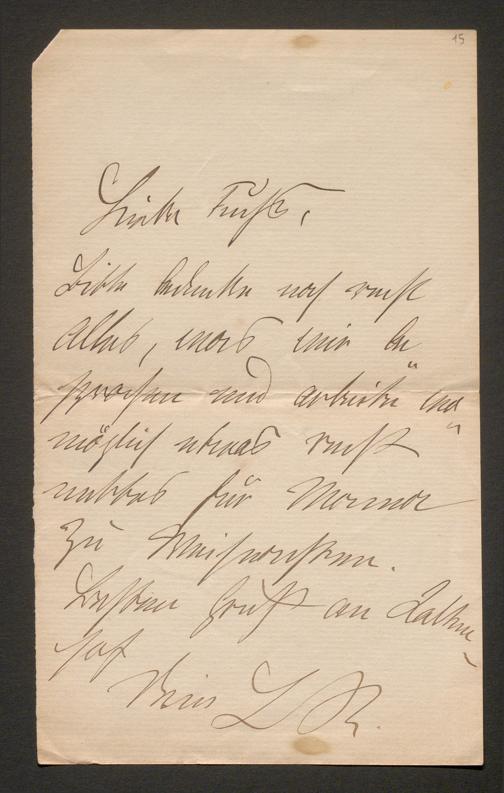 15
Lieber Fuchs,
Bitte bedenke noch recht
Alles, was wir be
sprochen und arbeite wo
möglich etwas recht
nettes für Mama
zu Weihnachten.
Besten Gruß an
Dein L R.